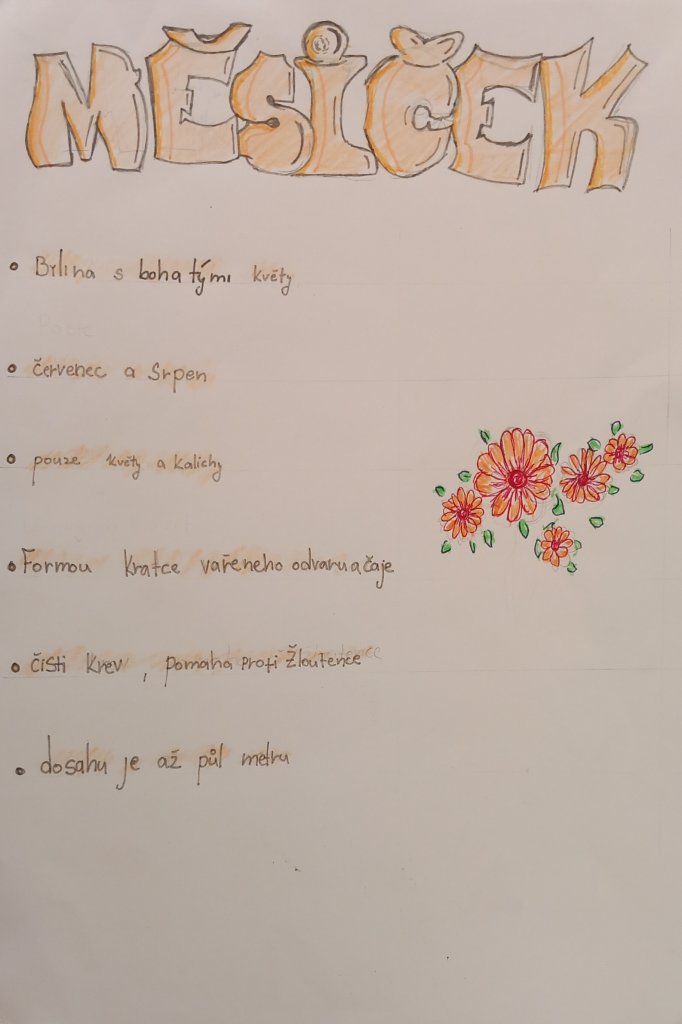 MĚSÍČEK
Brlina s bohatými květy
červenec a Srpen
pouze květy a Kalichy
Formou Kratce vařeneho odvaru a čaje
čisti Krev, pomaha proti žloutence
dosahu je až půl metru